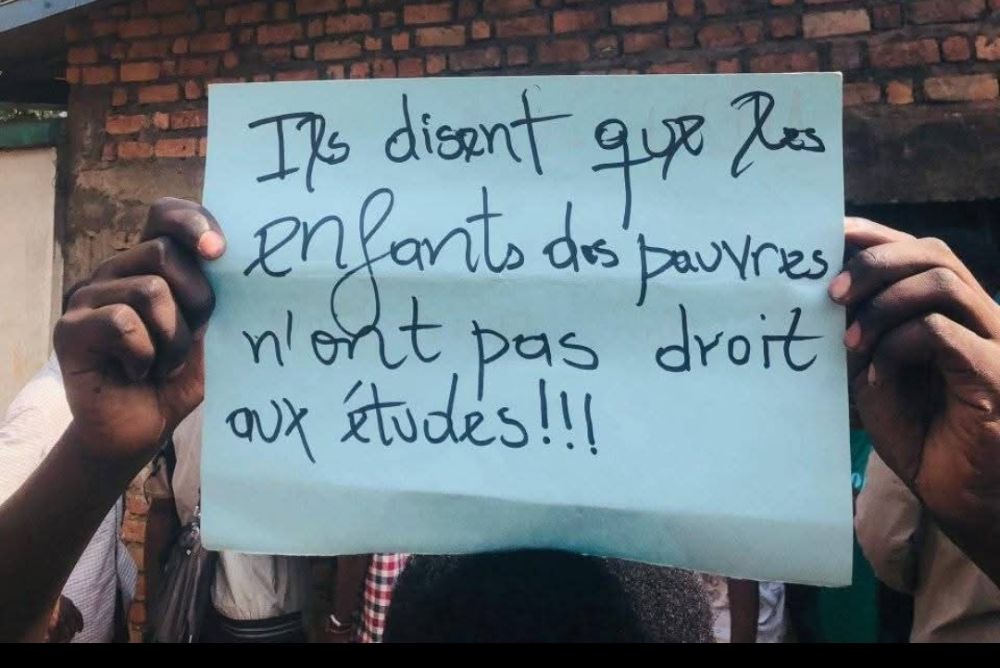 Ils disent que les
enfants des pauvres
n'ont pas droit
aux études!!!